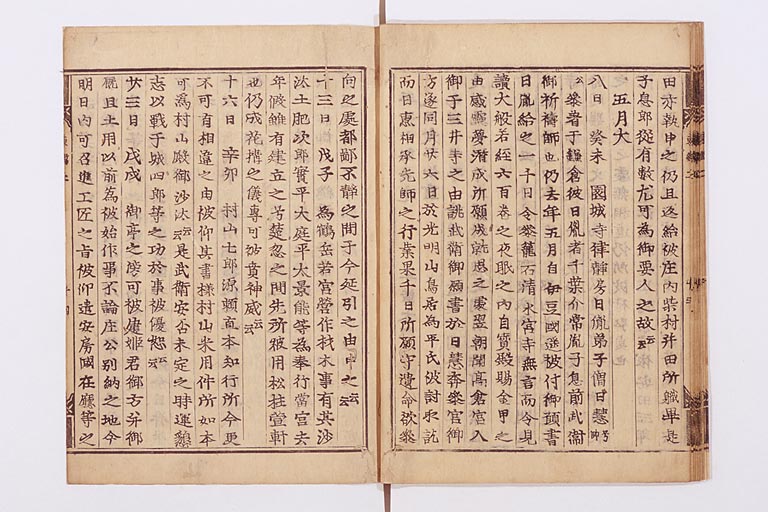 田亦執申之仍且返給被庄内柴村幷田所職畢是
子息郎從有數尤可為御要人之故云云
五月大
八日 癸未 園城寺律静房日胤弟子僧日慧号帥
公參著于鎌倉彼日胤者千葉介常胤子息前武衛
御祈禱師也仍去年五月自伊豆國遙被付御願書
日胤給之一千日令參籠石清水宮寺無言而令見
讀大般若經六百卷之夜眠之内自寳殿賜金甲之
由感靈夢潜成所願成就思之處翌朝聞髙倉宮入
御于三井寺之由誂武衛御願書於日慧奔參宮御
方遂同月廿六日於光明山鳥居為平氏被討取訖
而日惠相承先師之行業果千日所願守遺命欲參
向之處都鄙不静之間于今延引之由申之云云
十三日 戊子 為鶴岳若宮營作材木事有其沙
汰土肥次郎實平大庭平太景能等為奉行當宮去
年假雖有建立之号楚忽之間先所被用松柱萱軒
也仍成花搆之儀專可被賁神威云云
十六日 辛卯 村山七郎源頼直本知行所今更
不可有相違之由被仰其書様村山米用件所如本
可為村山殿御沙汰云云是武衛安否未定之時運懇
志以戰于城四郎等之功於事被優恕云云
廿三日 戊戌 御亭之傍可被建姫君御方幷御
厩且土用以前為被始作事不論庄公別納之地今
明日内可召進工匠之旨被仰遣安房國在廳等之